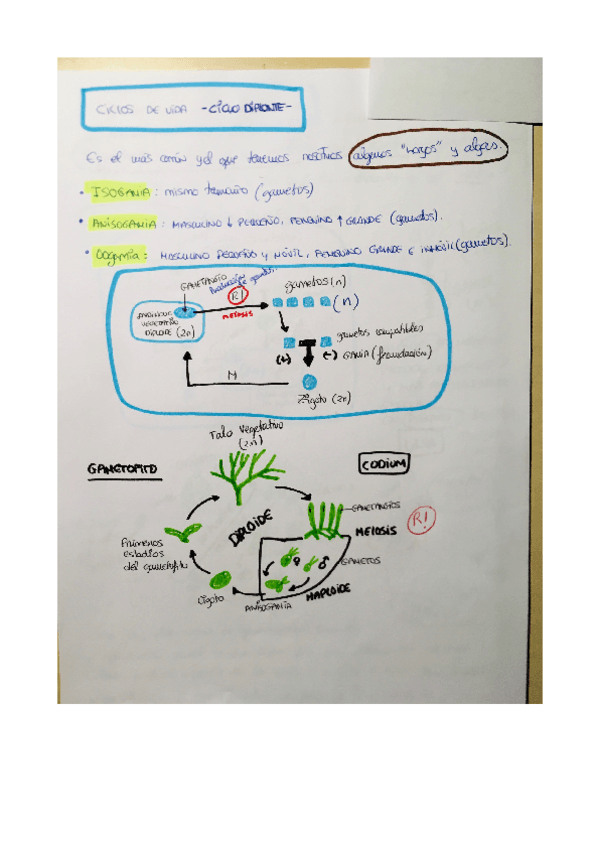 CICLOS DE VIDA -CICLO DIPLONTE-
Es el más común y el que tenemos nosotros algunos "hongos" y algas.
• ISOGAMIA: mismo tamaño (gametos)
• ANISOGAMIA: MASCULINO ↓ PEQUEÑO, FEMENINO ↑ GRANDE (gametos).
• OOgamia: MASCULINO PEQUEÑO y MÓVIL, FEMENINO GRANDE E INMÓVIL (gametos).
GAMETANGIO
Producción de gametos
R!
MEIOSIS
gametos (n)
(n)
INDIVIDUO
VEGETATIVO
DIPLOIDE (2n)
gametos compatibles
(+)
(-)
GAMIA (fecundación)
M
Zigoto (2n)
Talo vegetativo
(2n)
GAMETOFITO
CODIUM
DIPLOIDE
GAMETANGIOS
MEIOSIS
R!
Primeros
estadios
del gametofito
GAMETOS
♀
♂
Zigoto
ANISOGAMIA
HAPLOIDE